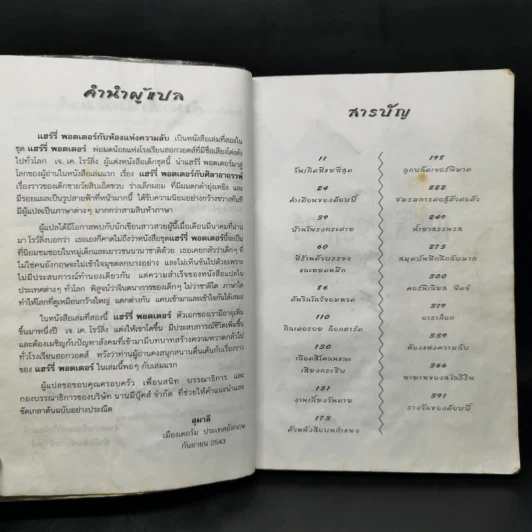 คำนำผู้แปล
แฮร์รี่ พอตเตอร์กับห้องแห่งความลับ เป็นหนังสือเล่มที่สองใน
ชุด แฮร์รี่ พอตเตอร์ พ่อมดน้อยแห่งโรงเรียนฮอกวอตส์ที่มีชื่อเสียงโด่งดัง
ไปทั่วโลก เจ. เค. โรว์ลิ่ง ผู้แต่งหนังสือเด็กชุดนี้ นำแฮร์รี่ พอตเตอร์มาสู่
โลกของผู้อ่านในหนังสือเล่มแรก เรื่อง แฮร์รี่ พอตเตอร์กับศิลาอาถรรพ์
เรื่องราวของเด็กชายวัยสิบเอ็ดขวบ ร่างเล็กผอม ที่มีผมดกดำยุ่งเหยิง และ
มีรอยแผลเป็นรูปสายฟ้าที่หน้าผากนี้ ได้รับความนิยมอย่างกว้างขวางทันที
มีผู้แปลเป็นภาษาต่าง ๆ มากกว่าสามสิบห้าภาษา
ผู้แปลได้มีโอกาสพบกับนักเขียนสาวสวยผู้นี้เมื่อเดือนมีนาคมที่ผ่าน
มา โรว์ลิ่งบอกว่า เธอเองก็คาดไม่ถึงว่าหนังสือชุดแฮร์รี่ พอตเตอร์นี้จะเป็น
ที่นิยมชมชอบในหมู่เด็กและเยาวชนนานาชาติด้วย เธอเคยกลัวว่าเด็กๆ ที่
ไม่ใช่คนอังกฤษจะไม่เข้าใจมุขตลกบางอย่าง และไม่เห็นขันไปด้วยเพราะ
ไม่มีประสบการณ์ทำนองเดียวกัน แต่ความสำเร็จของหนังสือแปลใน
ประเทศต่างๆ ทั่วโลก พิสูจน์ว่าจินตนาการของเด็กๆ ไม่ว่าชาติใด ภาษาใด
ทำให้โลกที่ดูเหมือนกว้างใหญ่ แตกต่างกัน แคบเข้ามาและเข้าใจกันได้เสมอ
ในหนังสือเล่มที่สองนี้ แฮร์รี่ พอตเตอร์ ตัวเอกของเรามีอายุเพิ่ม
ขึ้นมาหนึ่งปี เจ. เค. โรว์ลิ่ง แต่งให้เขาโตขึ้น มีประสบการณ์ชีวิตเพิ่มขึ้น
และต้องเผชิญกับปัญหาสังคมที่เข้ามามีบทบาทสร้างความหวาดกลัวไป
ทั่วโรงเรียนฮอกวอตส์ หวังว่าท่านผู้อ่านคงสนุกสนานตื่นเต้นกับเรื่องราว
ของ แฮร์รี่ พอตเตอร์ ในเล่มนี้พอๆ กับเล่มแรก
ผู้แปลขอขอบคุณครอบครัว เพื่อนสนิท บรรณาธิการ และ
กองบรรณาธิการของบริษัท นานมีบุ๊คส์ จำกัด ที่ช่วยให้คำแนะนำและ
ขัดเกลาต้นฉบับอย่างประณีต
สุมาลี
เมืองเดอรัม ประเทศอังกฤษ
กันยายน 2543
สารบัญ
11
วันเกิดที่แย่ที่สุด
24
คำเตือนของด๊อบบี้
39
บ้านโพรงกระต่าย
60
ที่ร้านตัวบรรจง
และหยดหมึก
86
ต้นวิลโลว์จอมหวด
110
กิลเดอรอย ล็อกฮาร์ต
130
เลือดสีโคลนและ
เสียงกระซิบ
151
งานเลี้ยงวันตาย
173
ตัวหนังสือบนกำแพง
198
ลูกบลัดเจอร์พิฆาต
222
ชมรมการต่อสู้ตัวต่อตัว
249
น้ำยาสรรพรส
275
สมุดบันทึกลึกลับมาก
300
คอร์นีเลียส ฟัดจ์
319
อาราก็อก
339
ห้องแห่งความลับ
366
ทายาทของสลิธีริน
391
รางวัลของด๊อบบี้